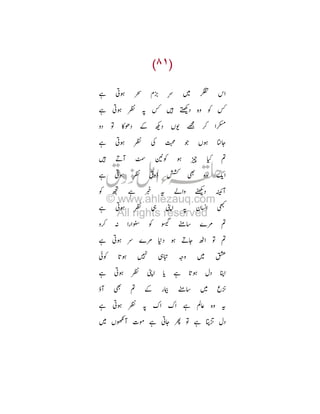 (۸۱)
اس نظر میں سر بزم سحر ہوتی ہے
کس کو وہ دیکھتے ہیں کس پہ نظر ہوتی ہے
مسکرا کر مجھے یوں دیکھ کے دھوکا تو نہ دو
جانتا ہوں جو محبت کی نظر ہوتی ہے
تم کیا چیز ہو کونین سمٹ آتے ہیں
وہ بھی کشش نظر ہوتی ہے
آئینہ دیکھنے والے یہ خبر ہے تجھ کو
کبھی انسان پہ اپنی ہی نظر ہوتی ہے
تم مرے سامنے گیسو کو سنوارا نہ کرو
تم تو اٹھ جاتے ہو دنیا مرے سر ہوتی ہے
عشق میں وجہ تباہی نہیں ہوتا کوئی
اپنا دل ہوتا ہے یا اپنی نظر ہوتی ہے
نزع میں سامنے بیمار کے تم بھی آؤ
یہ وہ عالم ہے اک اک پہ نظر ہوتی ہے
دل تڑپتا ہے تو پھر جاتی ہے موت آنکھوں میں
© www.ahlezauq.com
All rights reserved